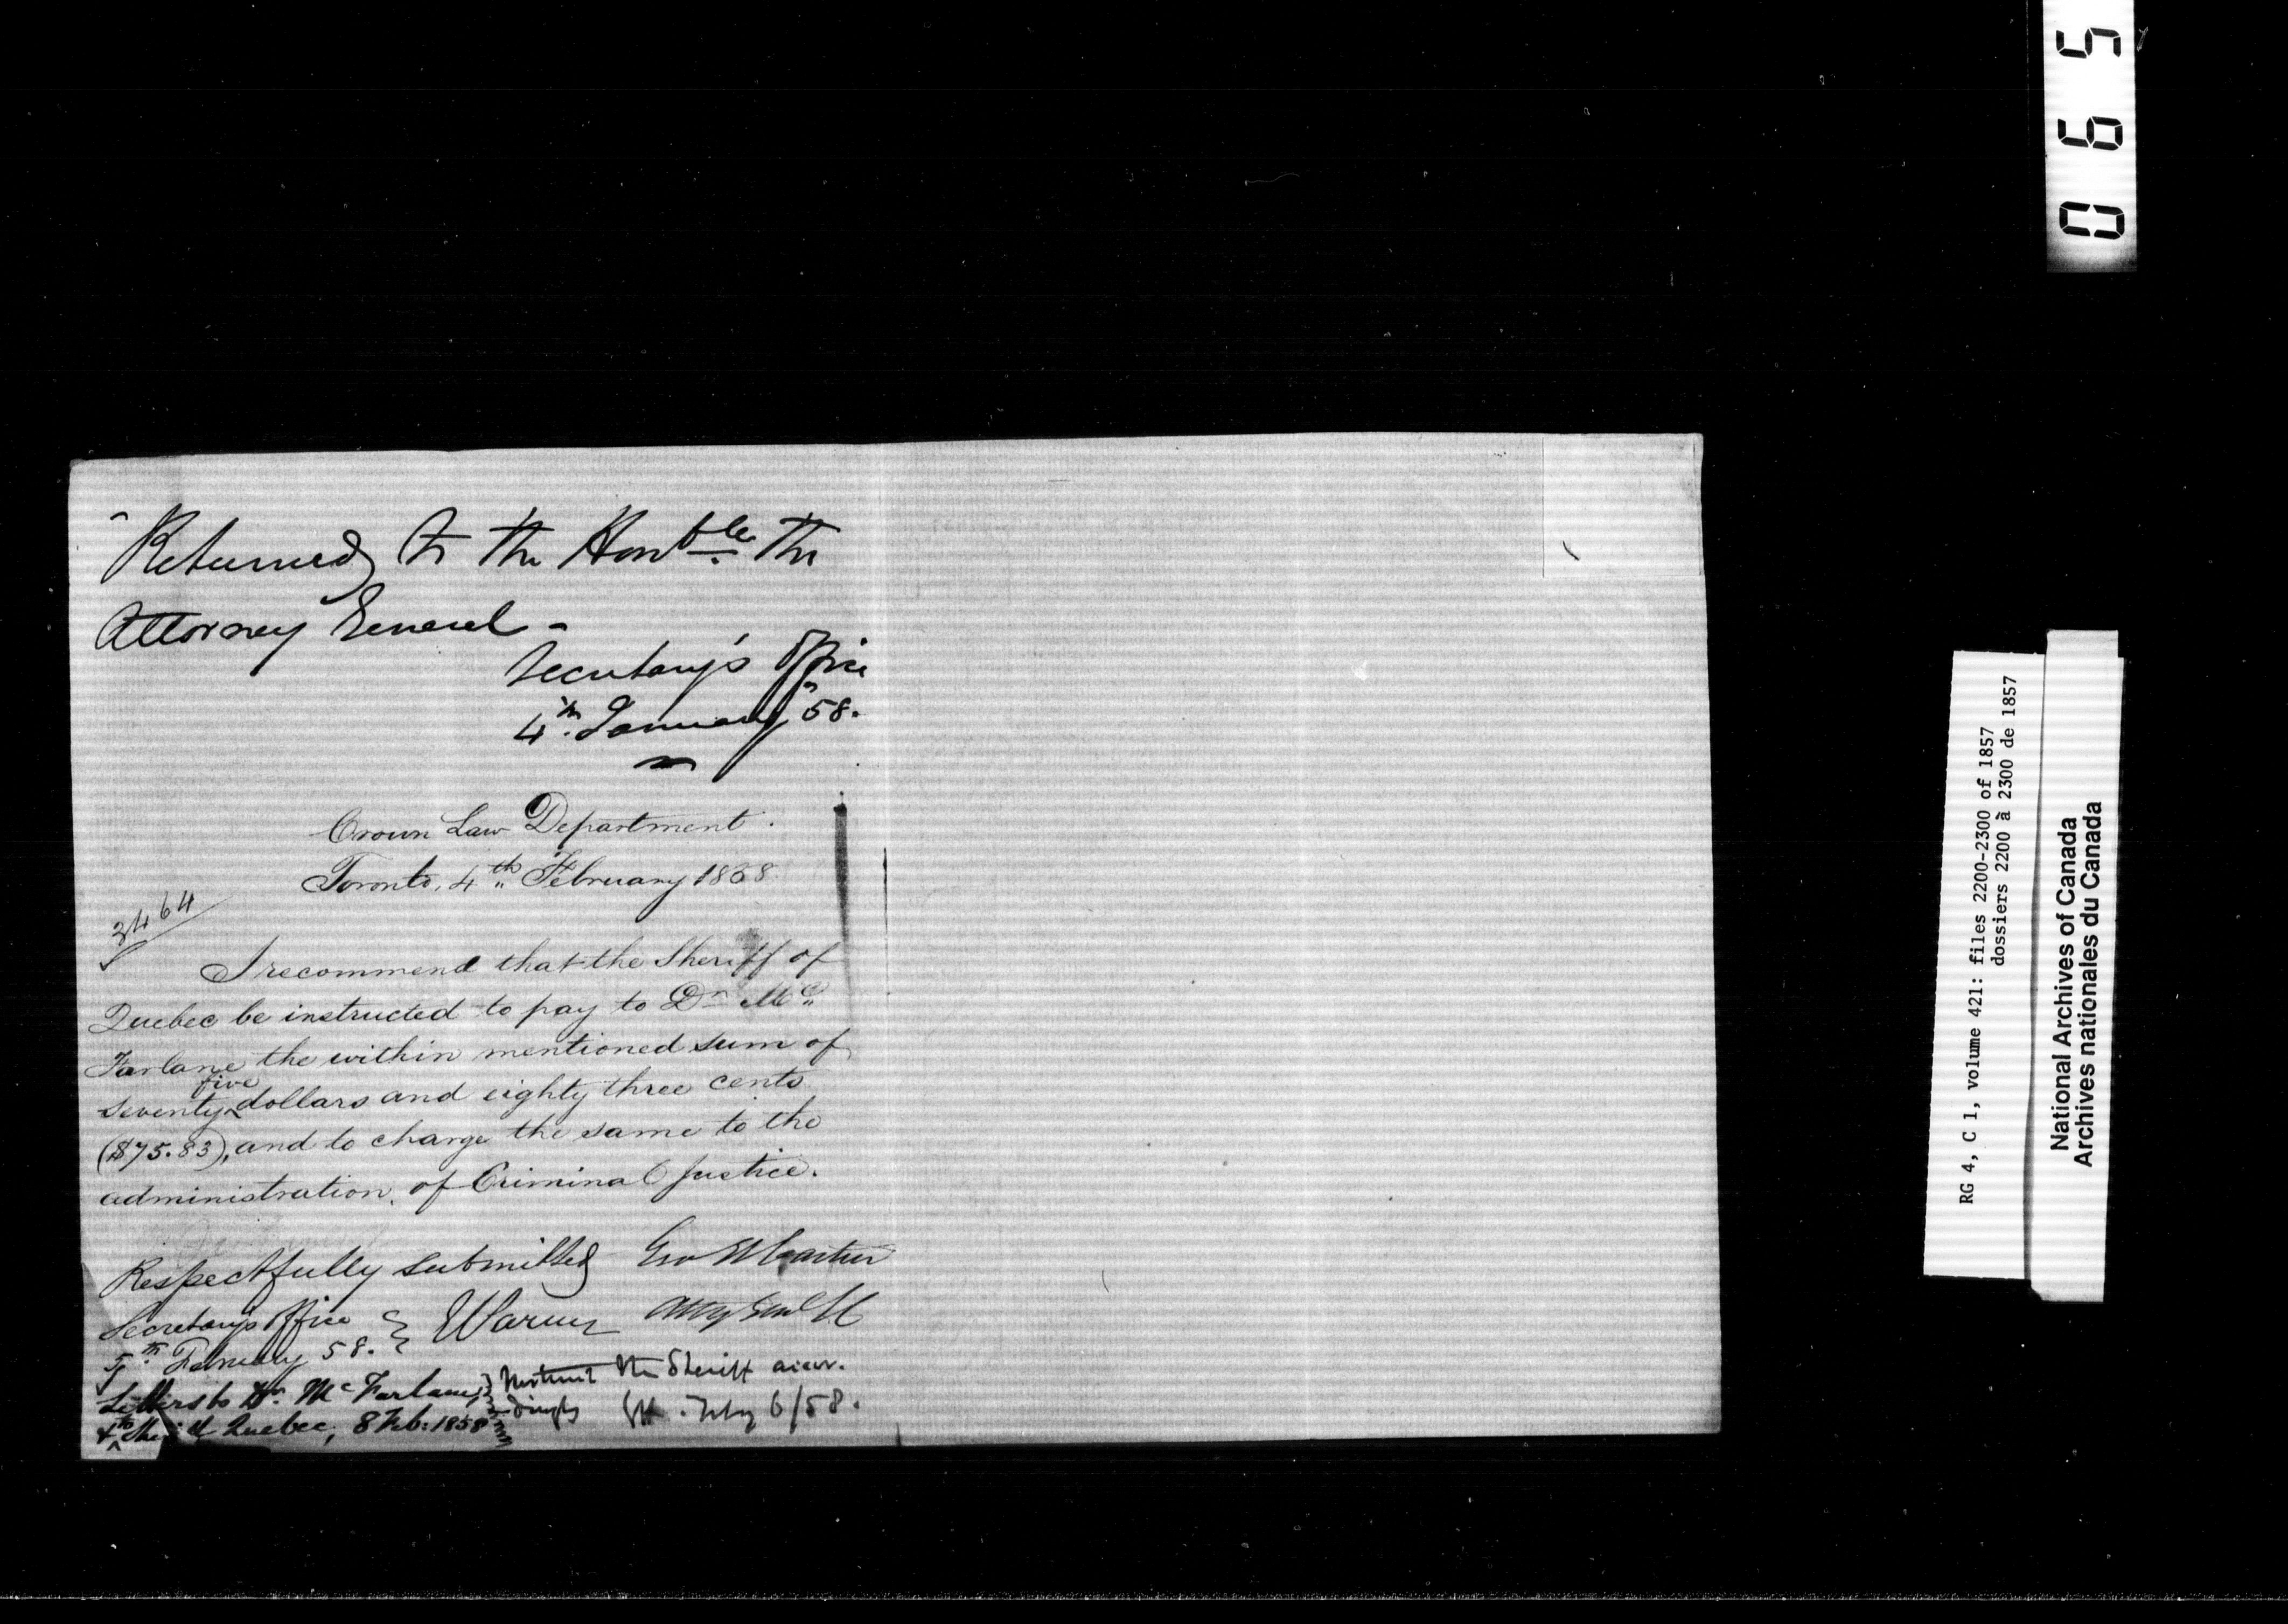 Returned to the Honble. the
Attorney General -
Secretary's Office
4th. January 58.
Crown Law Department.
Toronto, 4th February 1858.
3464
I recommend that the Sheriff of
Quebec be instructed to pay to Dr Mc
Farlane the within mentioned sum of
five
seventy dollars and eighty three cents
($75.83), and to charge the same to the
administration of Criminal Justice.
Respectfully submitted Geo E Cartier
Atty Genl
Secretary's Office
5th. February 58.
Letters to Dr. McFarlane,
& the Sheriff Quebec, 8 Feb: 1858
Instruct the Sheriff accor-
dingly Feby 6/58.
065
RG 4, C 1, volume 421: files 2200-2300 of 1857
dossiers 2200 à 2300 de 1857
National Archives of Canada
Archives nationales du Canada